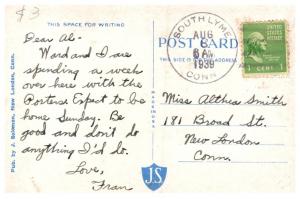 $3
THIS SPACE FOR WRITING
Dear Al-
Ward and I are
spending a week
over here with the
Porters. Expect to be
home Sunday. Be
good and don't do
anything I'd do.
Love,
Fran
Pub. by J. Solomon, New London, Conn.
SOUTH LYME
AUG
8 AM
1939
CONN
POST CARD
THIS SIDE IS FOR ADDRESS
1 CENT 1
Miss Althea Smith
181 Broad St.
New London
Conn.
JS